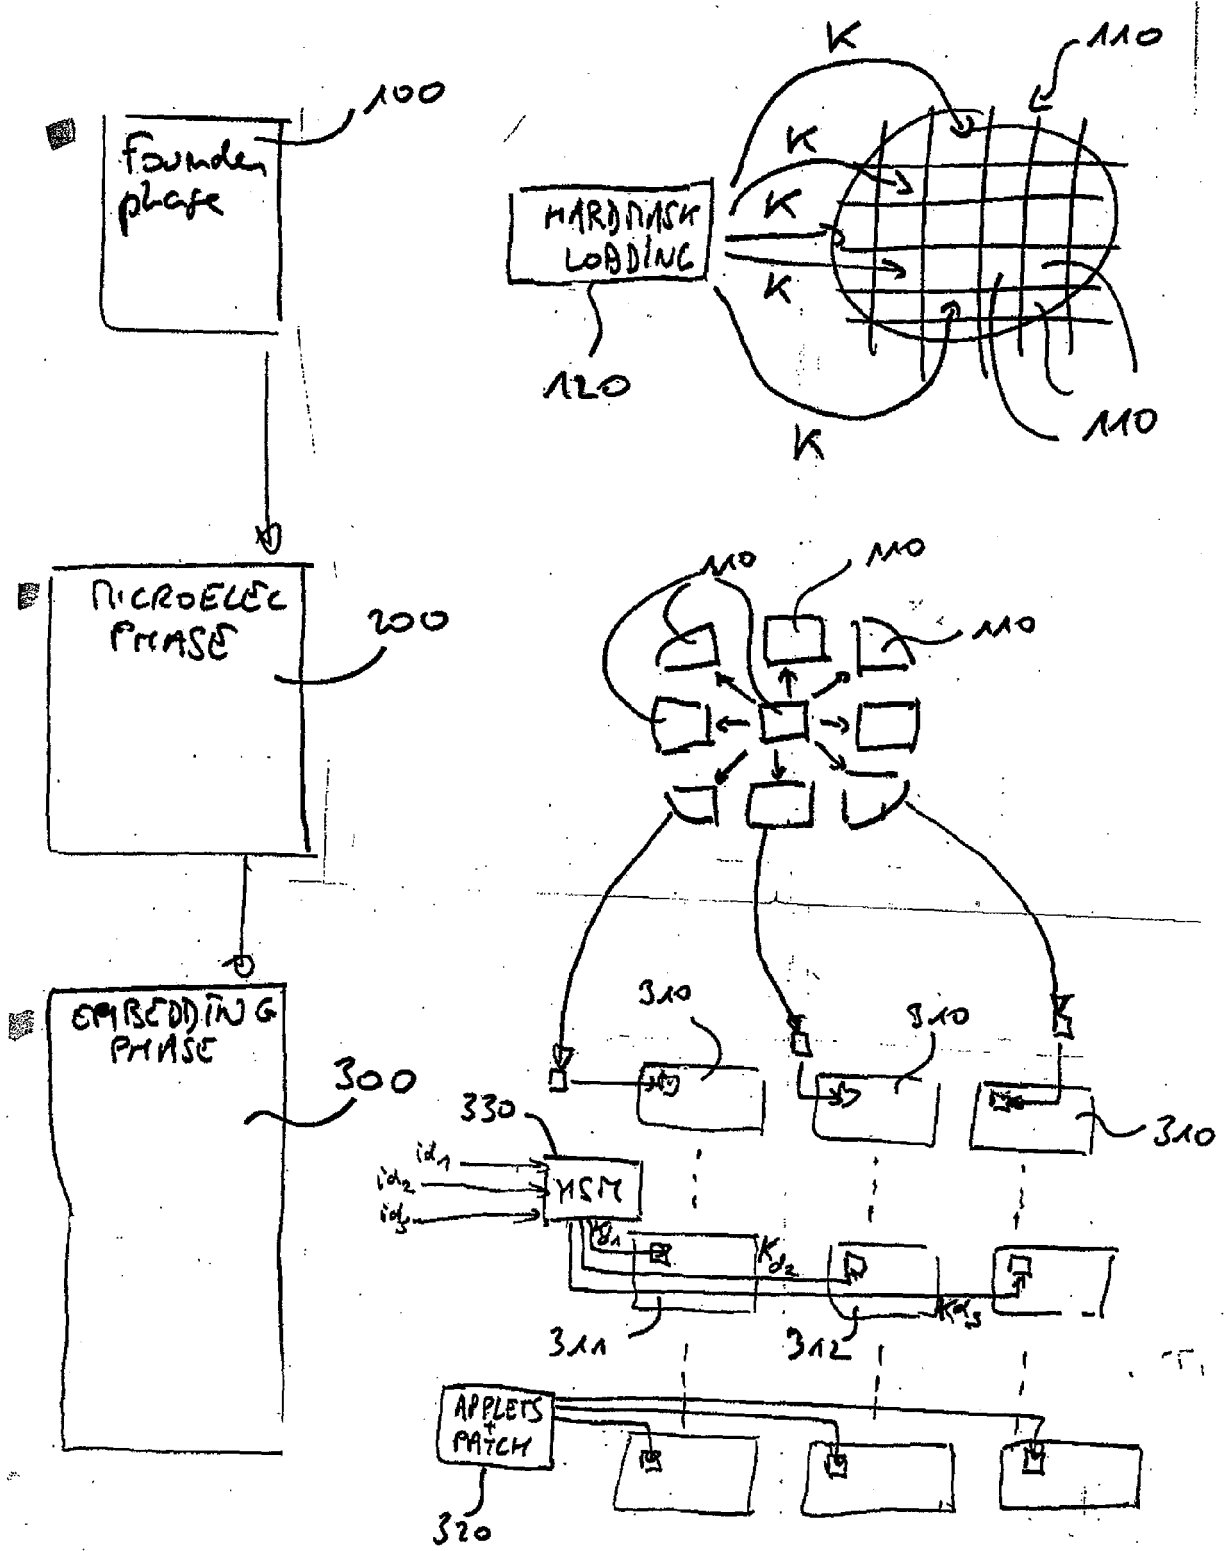 100
Founder
phase
K
110
K
K
HARDMASK
LOADING
K
120
110
K
MICROELEC
PHASE
200
110
110
110
EMBEDDING
PHASE
300
310
310
310
330
id1
id2
id3
HSM
Kd1
Kd2
Kd3
311
312
APPLETS
+
PATCH
320